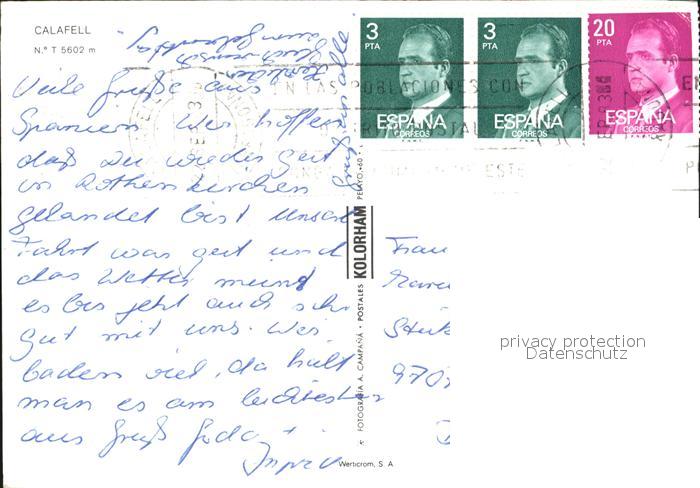 CALAFELL
N.° T 5602 m
Viele Grüße aus
Spanien. Wir hoffen
daß Du wieder gut
in Rothenkirchen
gelandet bist. Unsere
Fahrt war gut und
das Wetter meint
es bis jetzt auch sehr
gut mit uns. Wir
baden viel, da hält
man es am leichtesten
aus. Gruß
3 PTA
ESPAÑA
CORREOS
3 PTA
ESPAÑA
CORREOS
20 PTA
ESPAÑA
CORREOS
EN LAS POBLACIONES CON
ESTE
FOTOGRAFIA A. CAMPAÑÁ • POSTALES KOLORHAM PELAYO, 60
Frau
970
privacy protection
Datenschutz
Werticrom, S. A.